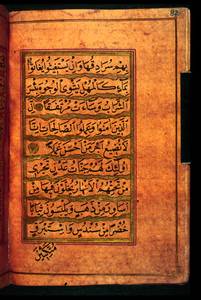 بِهِمْ سُرَادِقُهَا وَاِنْ يَسْتَغِيثُوا يُغَاثُوا
بِمَاءٍ كَالْمُهْلِ يَشْوِي الْوُجُوهَ بِئْسَ
الشَّرَابُ وَسَاءَتْ مُرْتَفَقًا اِنَّ
الَّذِينَ اٰمَنُوا وَعَمِلُوا الصَّالِحَاتِ اِنَّا
لَا نُضِيعُ اَجْرَ مَنْ اَحْسَنَ عَمَلًا
اُولٰئِكَ لَهُمْ جَنَّاتُ عَدْنٍ تَجْرِي
مِنْ تَحْتِهِمُ الْاَنْهَارُ يُحَلَّوْنَ فِيهَا مِنْ
اَسَاوِرَ مِنْ ذَهَبٍ وَيَلْبَسُونَ ثِيَابًا
خُضْرًا مِنْ سُنْدُسٍ وَاِسْتَبْرَقٍ